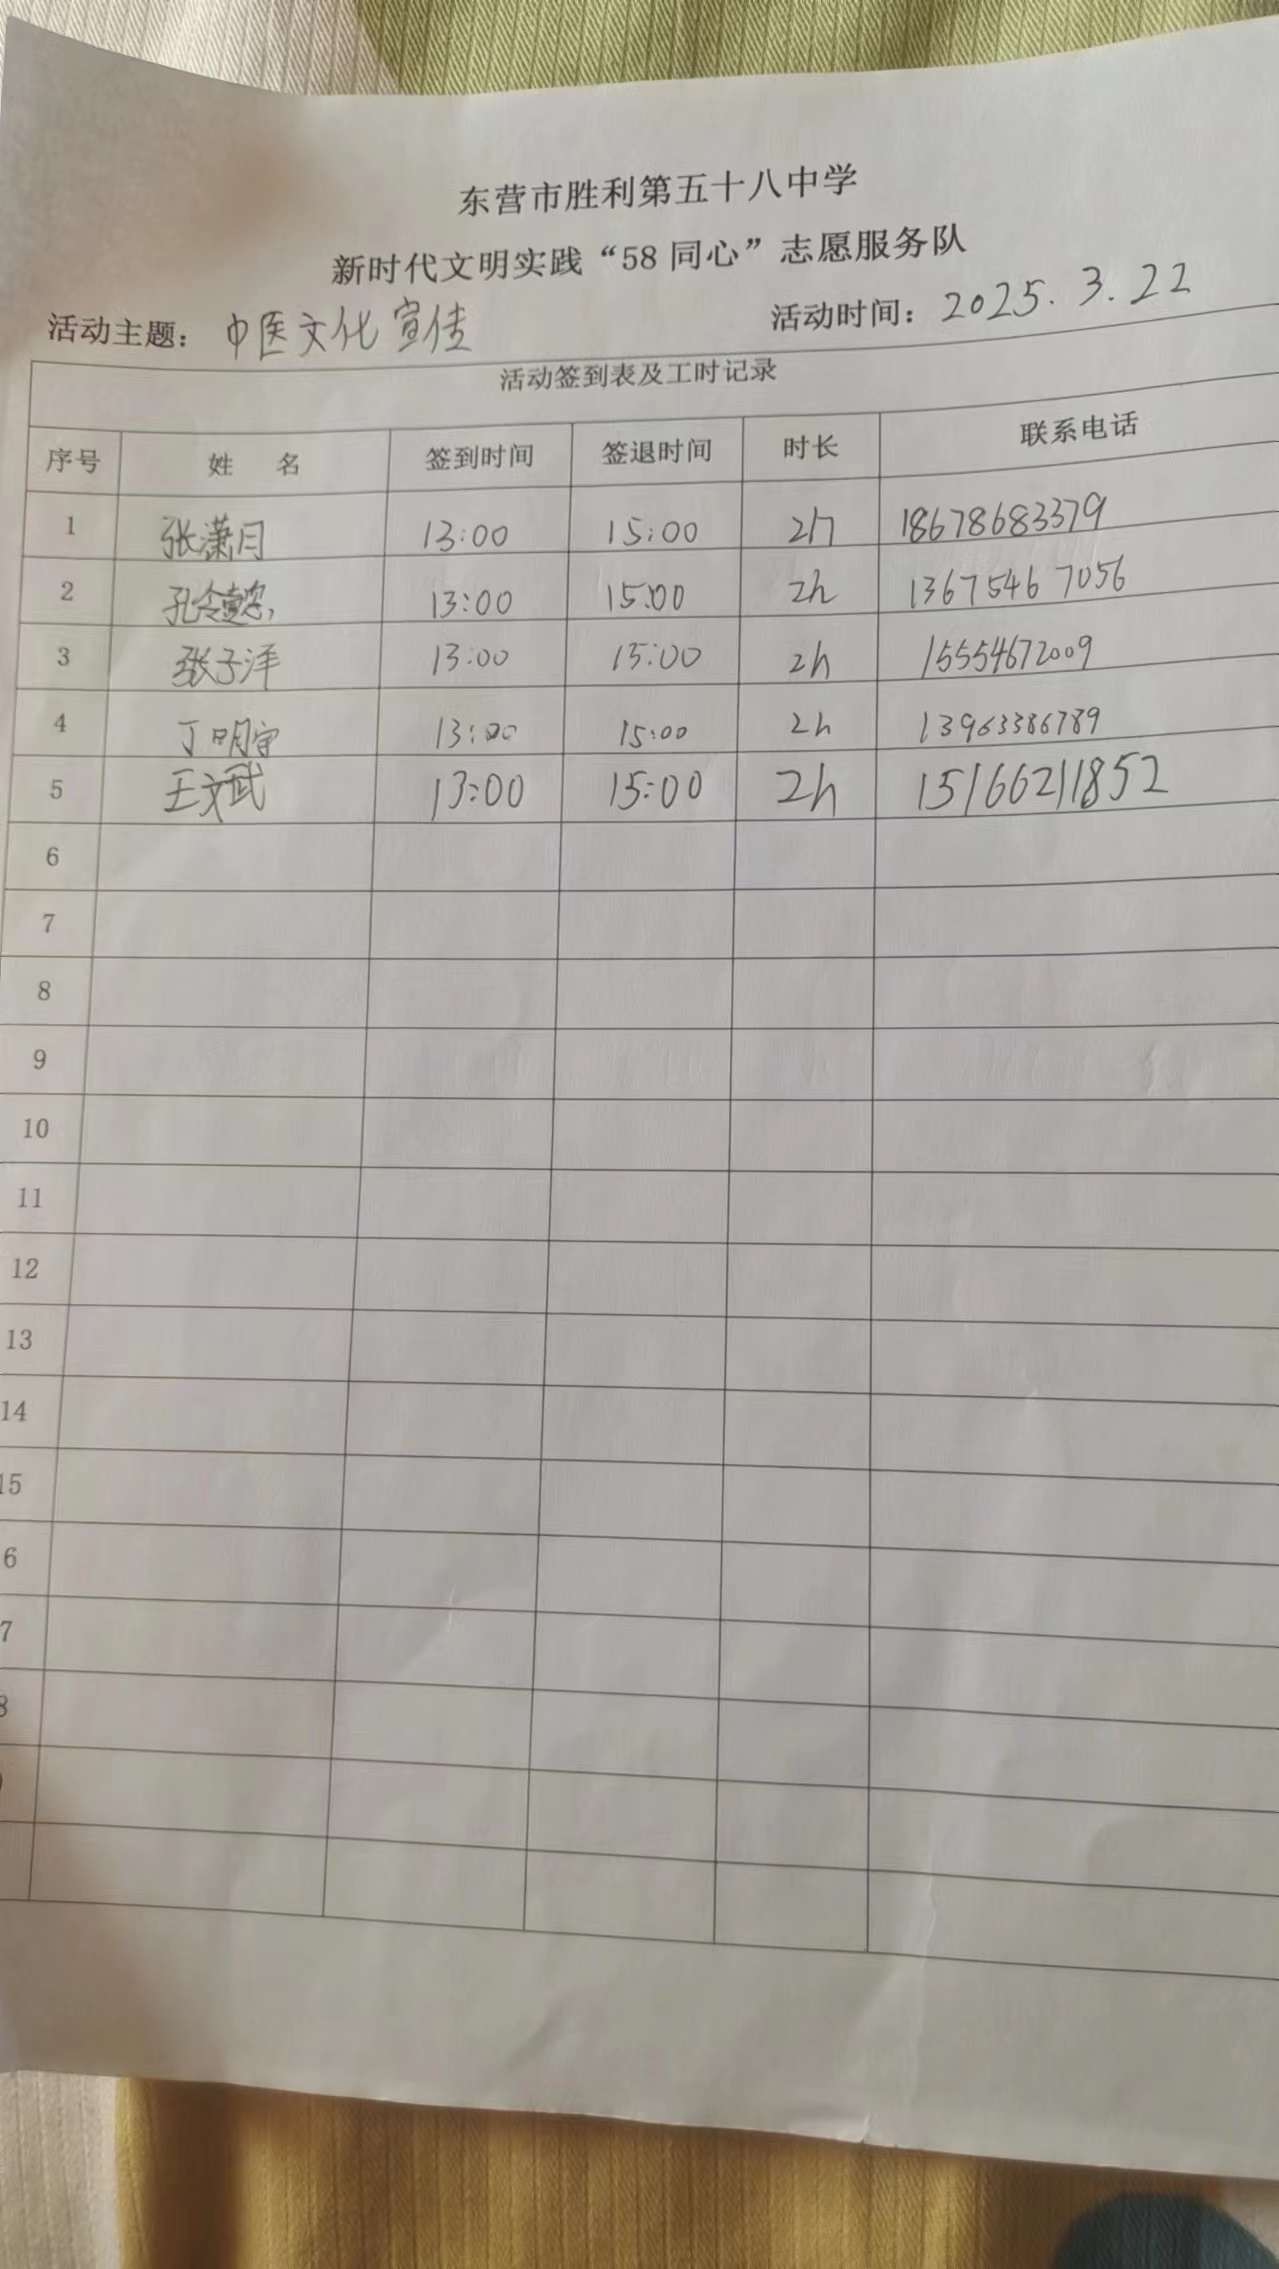 东营市胜利第五十八中学
新时代文明实践“58同心”志愿服务队
活动主题：中医文化宣传 活动时间：2025.3.22
活动签到表及工时记录
序号 姓 名 签到时间 签退时间 时长 联系电话
1 张潇月 13:00 15:00 2h 18678683379
2 孔令 13:00 15:00 2h 13675467056
3 张子洋 13:00 15:00 2h 15554672009
4 丁明宇 13:00 15:00 2h 13963386789
5 王文武 13:00 15:00 2h 15166211852
6
7
8
9
10
11
12
13
14
15
6
7
8